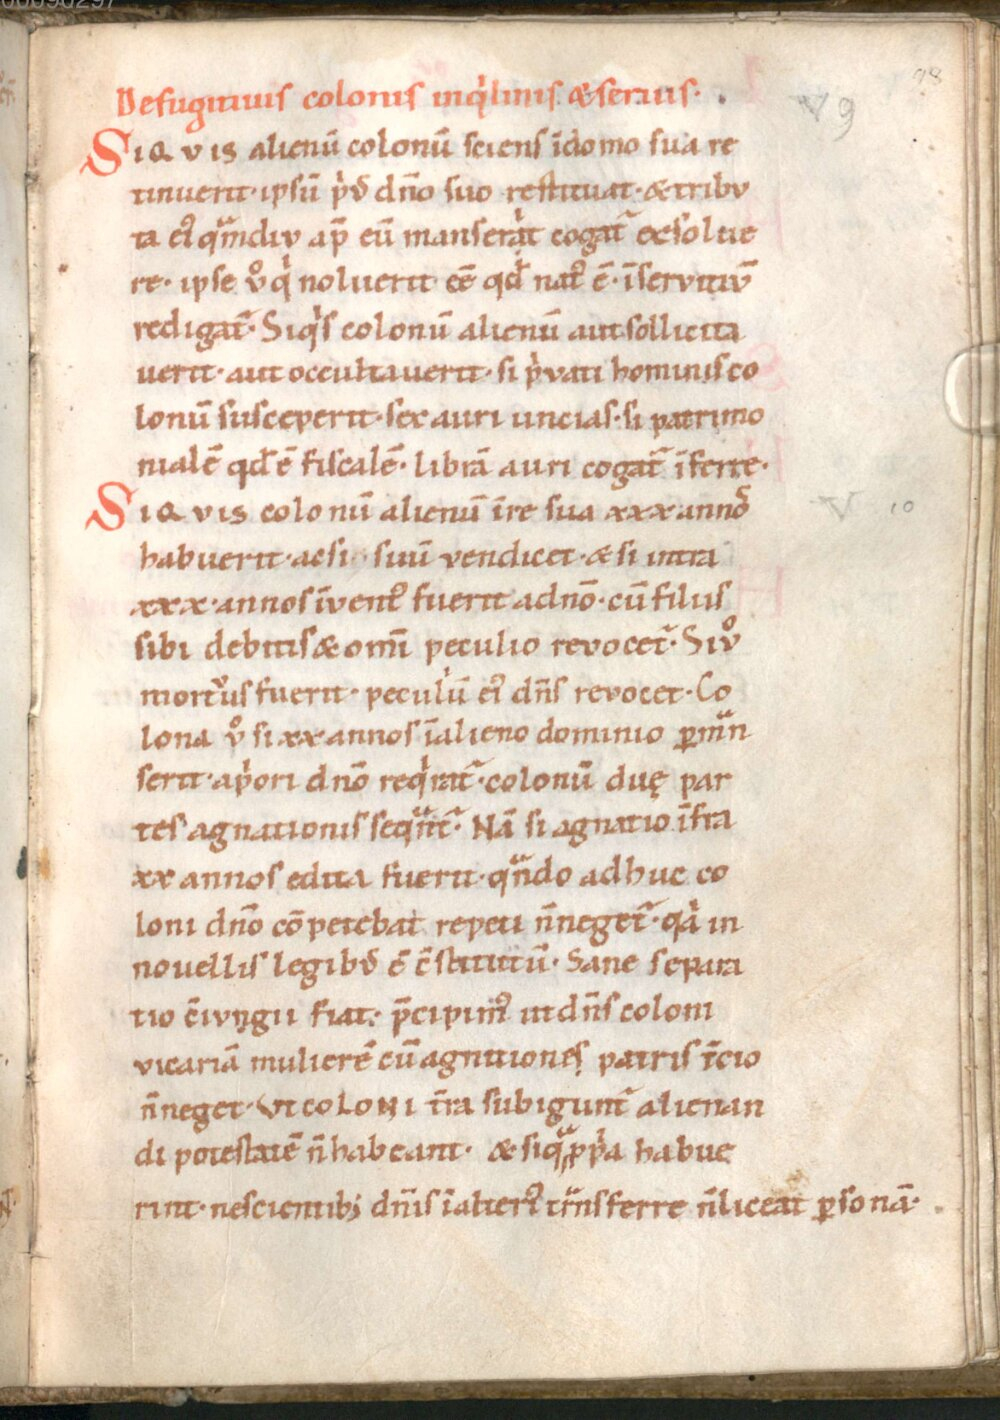 00090297
98
De fugitiuis colonis inq̇linis. & seruis.
V 9
SIQVIS alienū colonū sciens īdomo sua re
tinuerit· ipsū p̄d dn̄o suo restituat· & tribu
ta ei⁹ qͣmdiu ap̄ eū manserit cogat̄ exsolue
re· ipse v̊ q̇ noluerit eē qd̄ nat⁹ ē· īservitiū
redigat̄· Siq̇s colonū alienū aut sollicita
uerit· aut occultauerit· si ṗvati hominis co
lonū susceperit· sex auri uncias· si patrimo
nialē qd̄ ē fiscalē· librā auri cogat̄ īferre·
SIQVIS colonū alienū īre sua xxx annoꝝ
V 10
habuerit· ac si suū vendicet· & si intra
xxx· annos īvent⁹ fuerit adn̄o· cū filiis
sibi debitis & om̄i peculio revocet̄· Si v̊
mortuus fuerit· peculiū ei⁹ dn̄s revocet· Co
lona v̊ si xx annos īalieno dominio ꝑmͣn
serit· aṗori dn̄o req̇rat̄· colonū duę par
tes agnationis seqͣnt̄· Nā si agnatio īfra
xx annos edita fuerit· qͣndo adhuc co
loni dn̄o cōpetebat repeti n̄neget̄· qȧ in
novellis legibꝰ ē c̄stitutū· Sane separa
tio c̄iungii fiat· p̄cipim⁹ ut dn̄s coloni
vicariā mulierē cū agnitiones patris t̄cio
n̄neget· VT COLONI t̄ra subigunt̄ alienan
di potestatē n̄ habeant· & siqͣ ꝓṗa habue
rint· nescientibꝫ dn̄is īalteri⁹ trͣnsferre n̄liceat ꝑsonā·